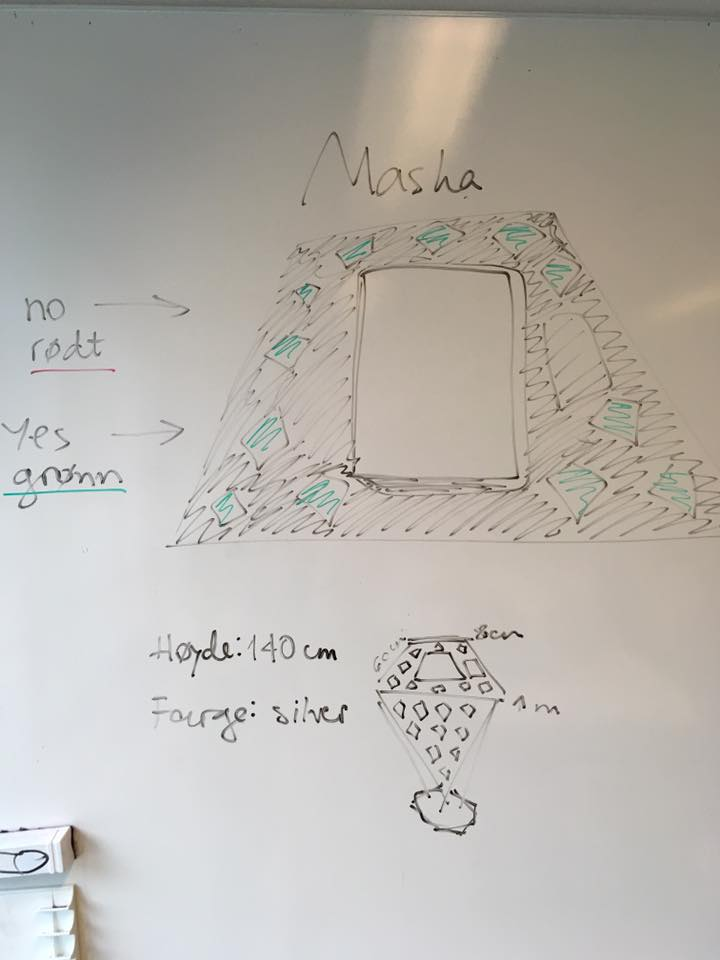 Masha
no
rødt
Yes
grønn
Høyde: 140 cm
Farge: silver
8cm
60cm
1m